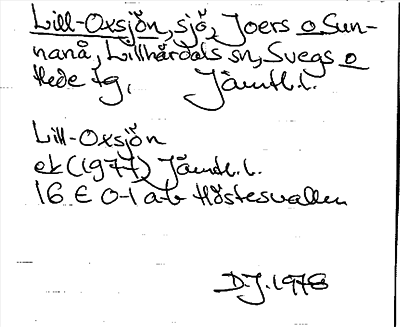 Lill-Oxsjön, sjö, Joers o Sun-
nanå, Lillhärdals sn, Svegs o
Hede tg, Jämtl.l.
Lill-Oxsjön
ek (1977) Jämtl.l.
16 E 0-1 a-b Höstesvallen
D.J. 1978